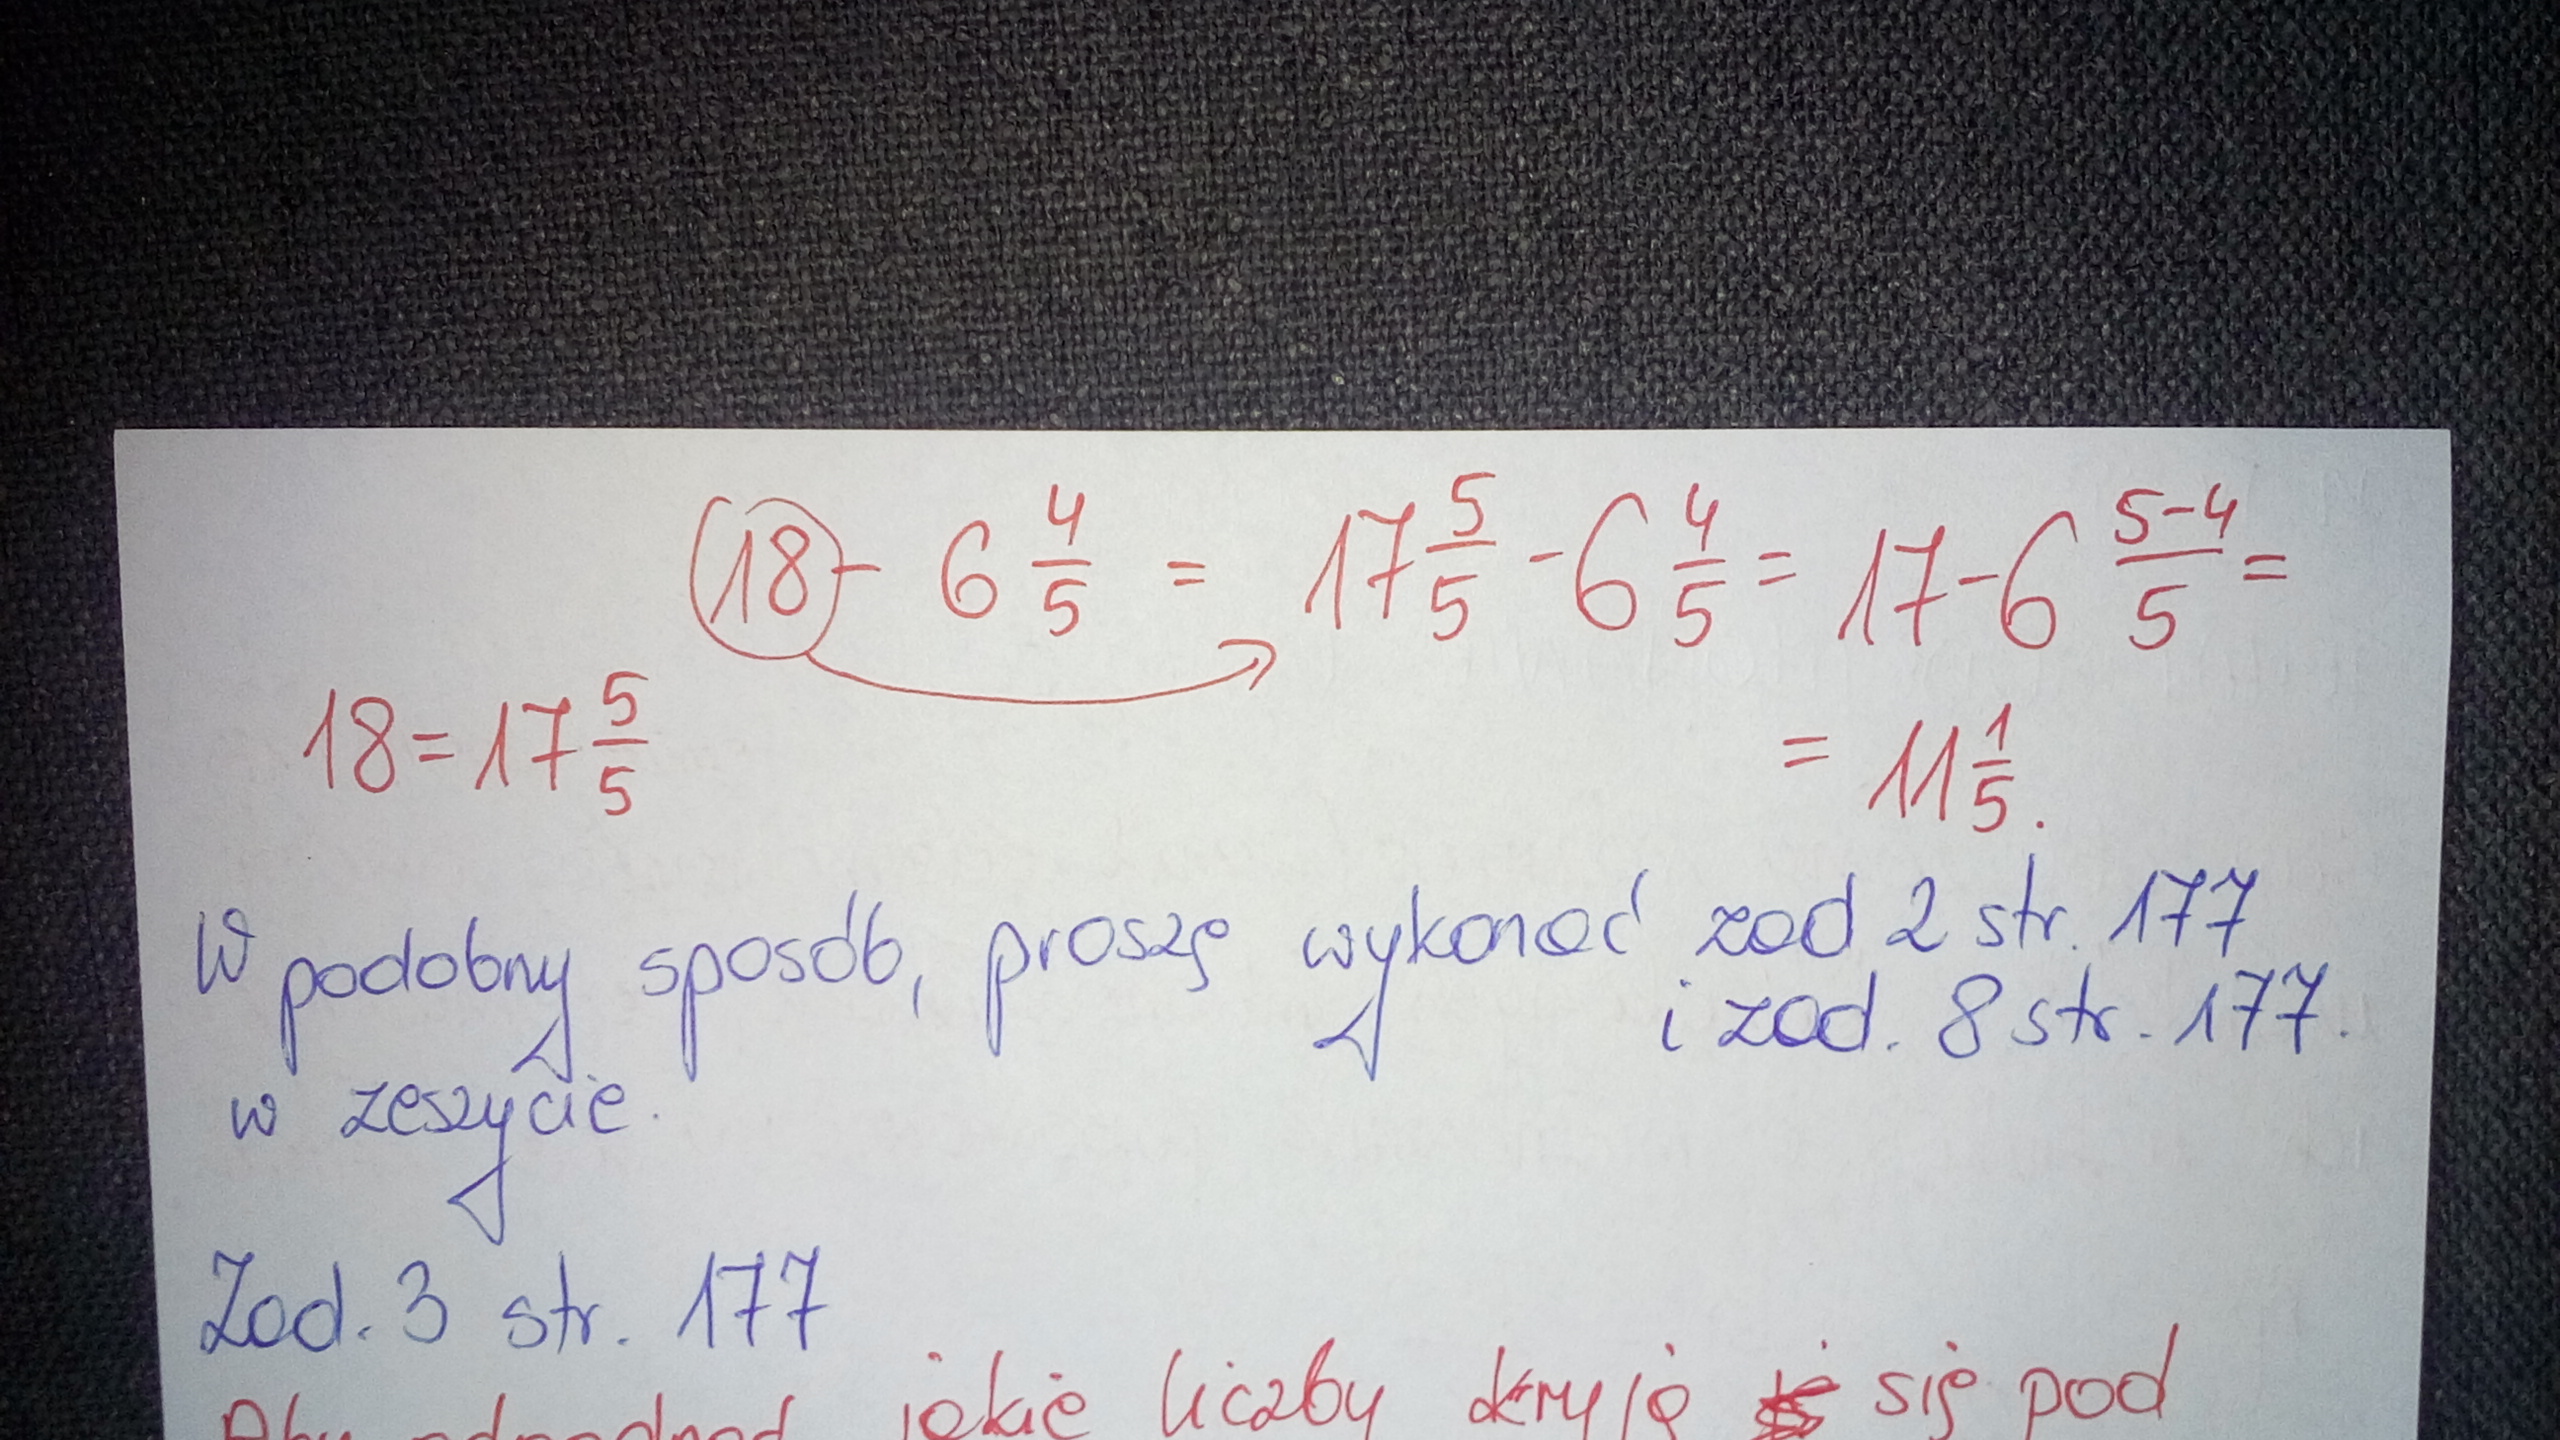 18 - 6 4/5 = 17 5/5 - 6 4/5 = 17 - 6 (5-4)/5 =
18 = 17 5/5
= 11 1/5.
W podobny sposób, proszę wykonać zad 2 str. 177
i zad. 8 str. 177.
w zeszycie.
Zad. 3 str. 177
Aby odpowiedzieć jakie liczby kryją się pod